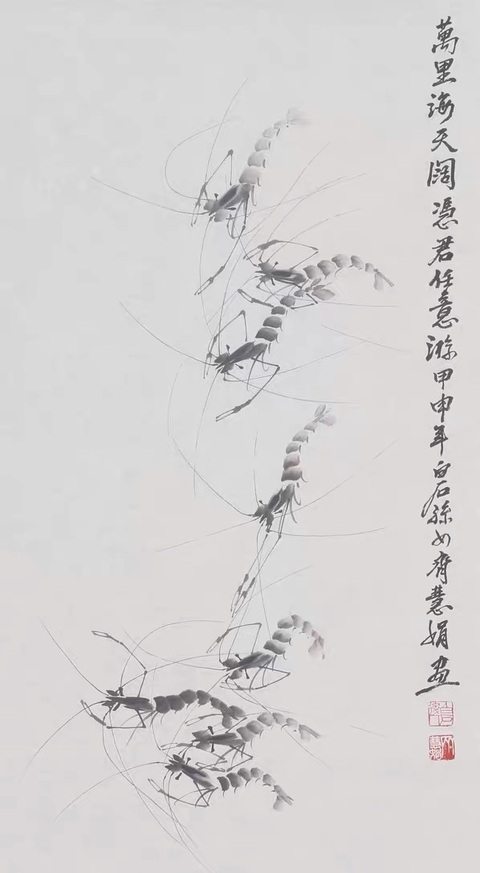 萬里海天闊憑君任意游甲申年白石孫女齊慧娟画